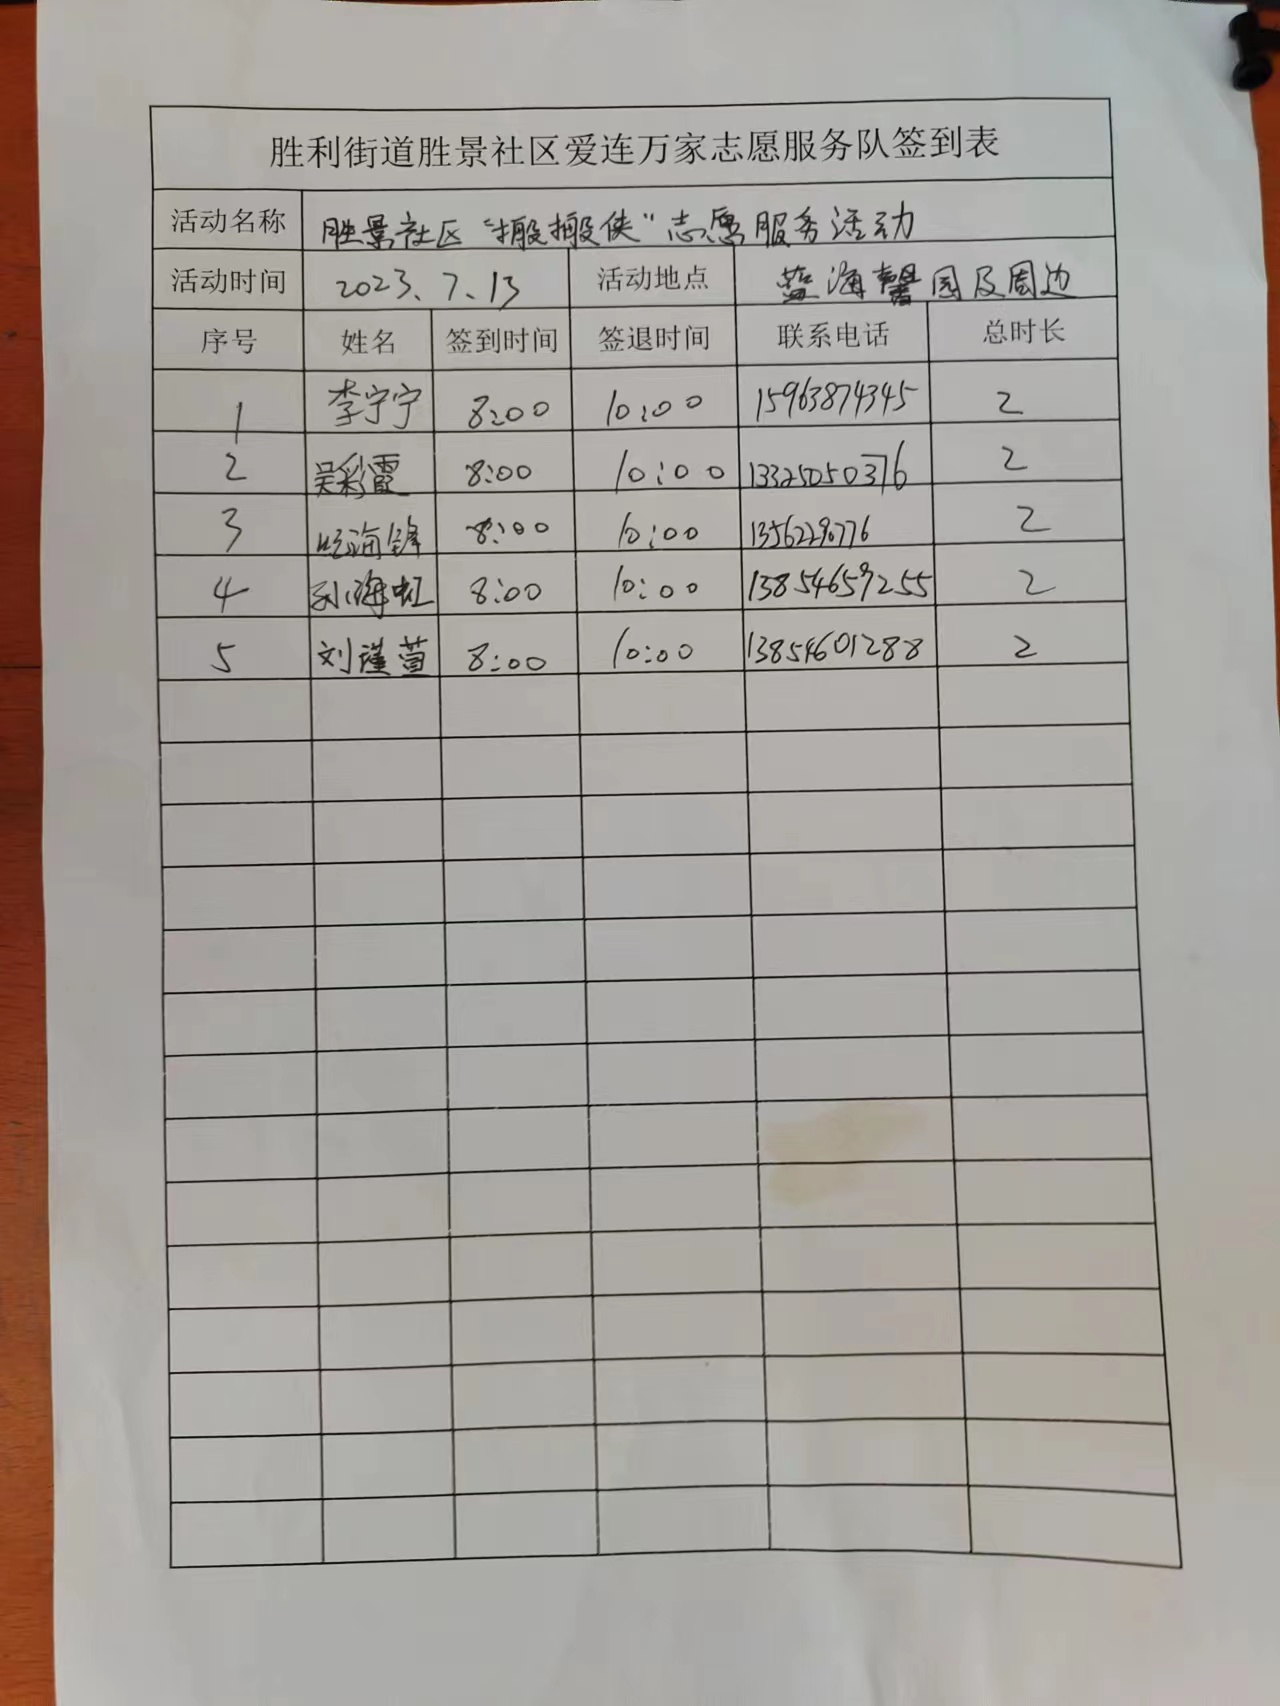 胜利街道胜景社区爱连万家志愿服务队签到表
活动名称 胜景社区“搬搬侠”志愿服务活动
活动时间 2023.7.13 活动地点 蓝海馨园及周边
序号 姓名 签到时间 签退时间 联系电话 总时长
1 李宁宁 8:00 10:00 15963874345 2
2 吴彩霞 8:00 10:00 13325050376 2
3 海锋 8:00 10:00 2
4 孙海虹 8:00 10:00 13854659255 2
5 刘谨萱 8:00 10:00 13854601288 2